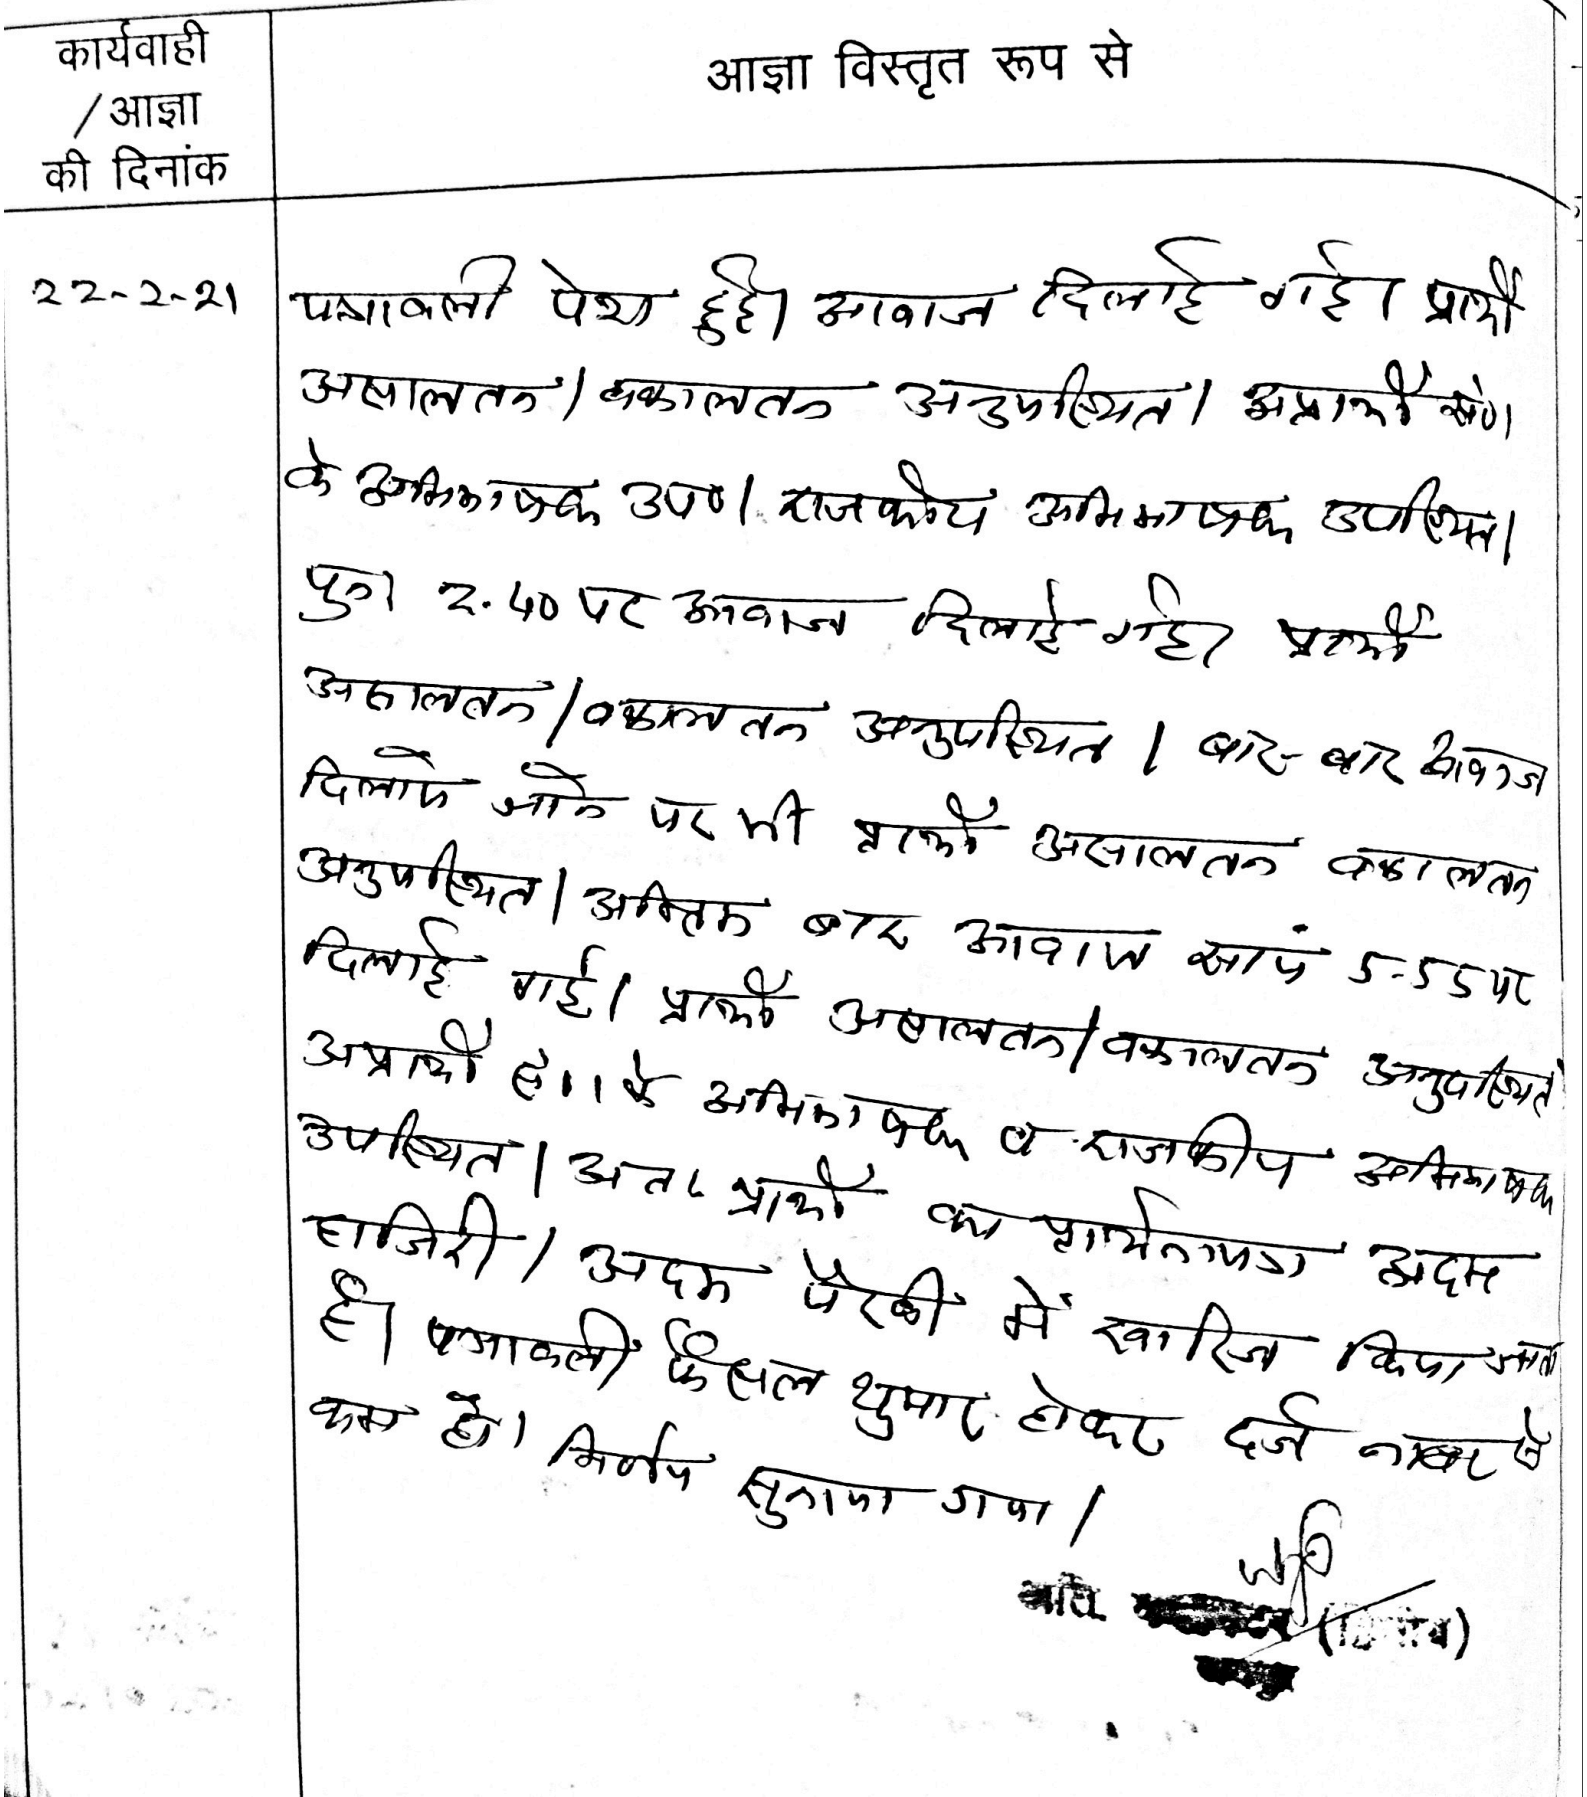 कार्यवाही
/आज्ञा
की दिनांक
आज्ञा विस्तृत रूप से
22-2-21
पत्रावली पेश हुई। आवाज दिलाई गई। प्रार्थी
असालतन/वकालतन अनुपस्थित। अप्रार्थी सं०1
के अभिभाषक उप०। राजकीय अभिभाषक उपस्थित।
पुनः 2.40 पर आवाज दिलाई गई। प्रार्थी
असालतन/वकालतन अनुपस्थित। बार-बार आवाज
दिलाये जाने पर भी प्रार्थी असालतन वकालतन
अनुपस्थित। अन्तिम बार आवाज सायं 5-55 पर
दिलाई गई। प्रार्थी असालतन/वकालतन अनुपस्थित
अप्रार्थी सं०1 के अभिभाषक व राजकीय अभिभाषक
उपस्थित। अतः प्रार्थी का प्रार्थनापत्र अदम
हाजिरी/अदम पैरवी में खारिज किया जाता
है। पत्रावली फैसल शुमार होकर दर्ज नम्बर से
कम हो। निर्णय सुनाया गया।
अति.